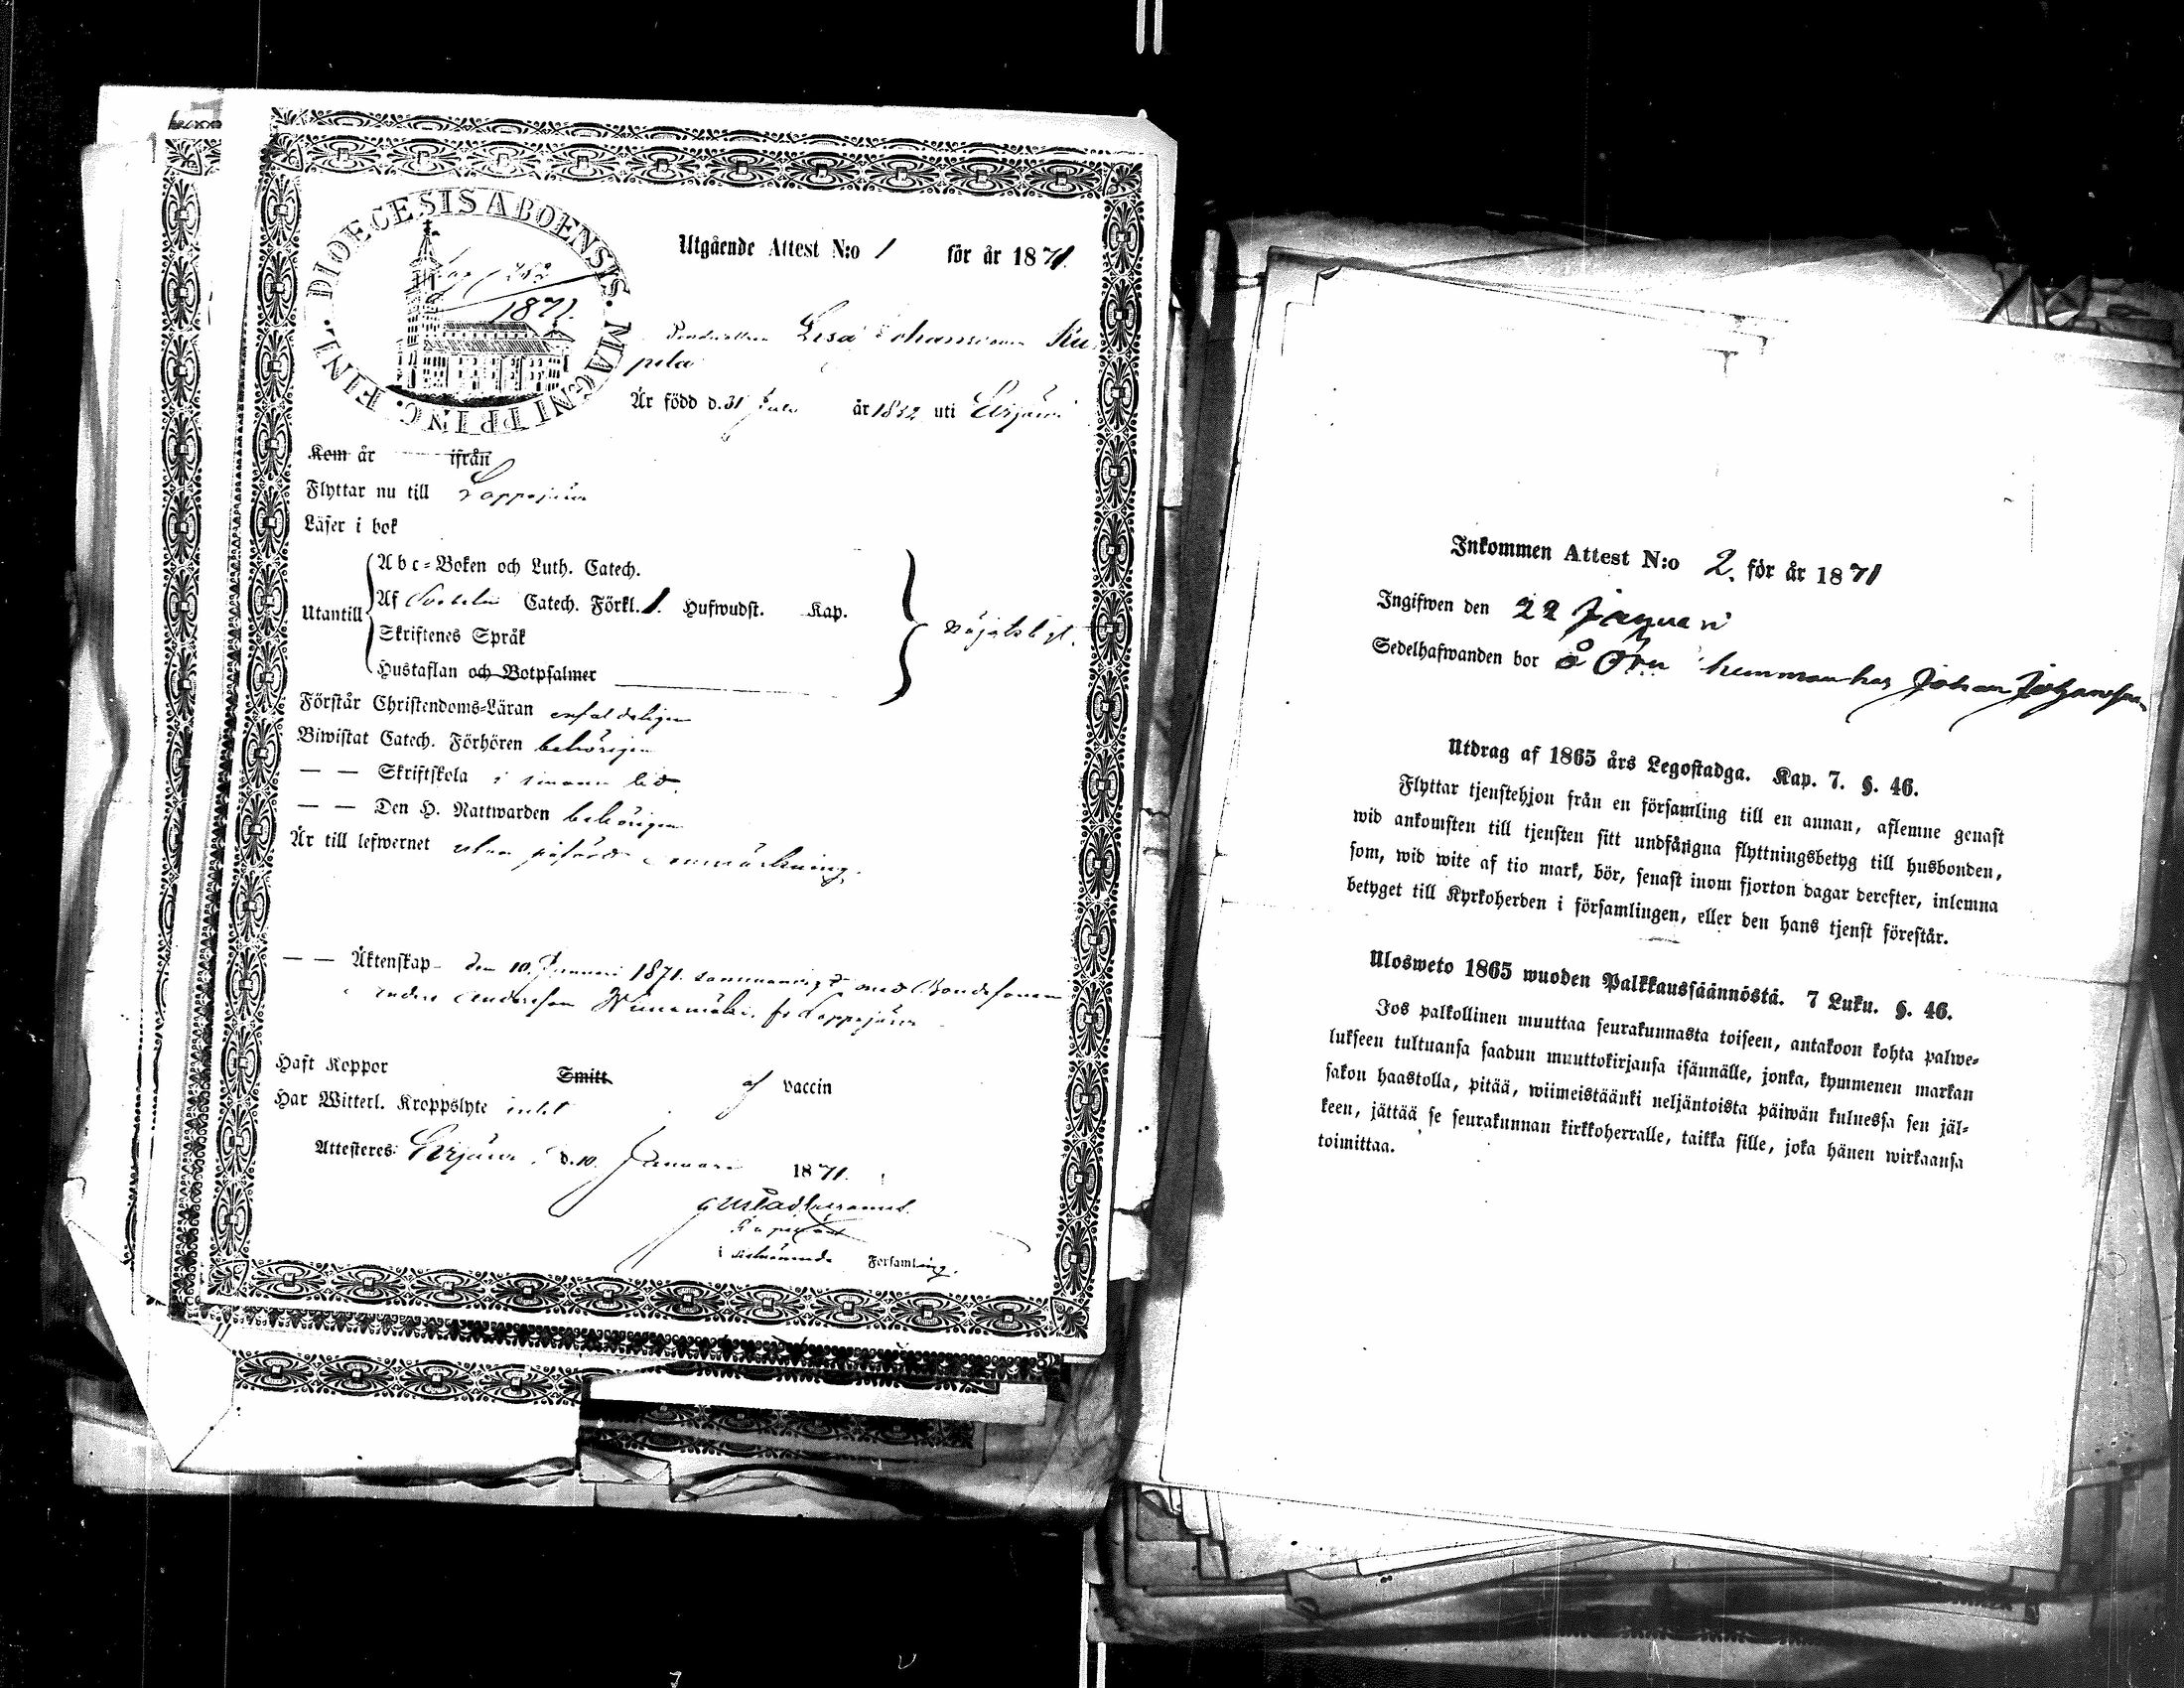 DIOECESIS ABOENSIS. MAGNI PRINC. FINL.
1871.
Utgående Attest N:o 1 för år 1871.
Lisa Johansdotter Ku
pila
Är född d. 31 Juli år 1852 uti Evijärvi
Kom år ifrån
Flyttar nu till Lappajärvi
Läser i bok
Utantill
Abc-Boken och Luth. Catech.
Af Svebelii Catech. Förkl. 1. Hufwudst. Kap.
Skriftenes Språk
Hustaflan och Botpsalmer
nöjaktigt.
Förstår Christendoms-Läran enfaldeligen
Biwistat Catech. Förhören behörigen
— — Skriftskola i sinom tid.
— — Den H. Nattwarden behörigen
Är till lefwernet utan påförd anmärkning.
— — Äktenskap den 10. Januari 1871. sammanvigd med Bondesonen
Anders Andersson fr Lappajärvi
Haft Koppor Smitt af vaccin
Har Witterl. Kroppslyte intet
Attesteras: Evijärvi d. 10. Januari 1871.
i Församling.
Inkommen Attest N:o 2. för år 1871
Ingifwen den 22 Januari
Sedelhafwanden bor å hemman hos Johan Johansson
Utdrag af 1865 års Legostadga. Kap. 7. §. 46.
Flyttar tjenstehjon från en församling till en annan, aflemne genast
wid ankomsten till tjensten sitt undfångna flyttningsbetyg till husbonden,
som, wid wite af tio mark, bör, senast inom fjorton dagar derefter, inlemna
betyget till Kyrkoherden i församlingen, eller den hans tjenst förestår.
Ulosweto 1865 wuoden Palkkaussäännöstä. 7 Luku. §. 46.
Jos palkollinen muuttaa seurakunnasta toiseen, antakoon kohta palwe-
lukseen tultuansa saadun muuttokirjansa isännälle, jonka, kymmenen markan
sakon haastolla, pitää, wiimeistäänki neljäntoista päiwän kuluessa sen jäl-
keen, jättää se seurakunnan kirkkoherralle, taikka sille, joka hänen wirkaansa
toimittaa.